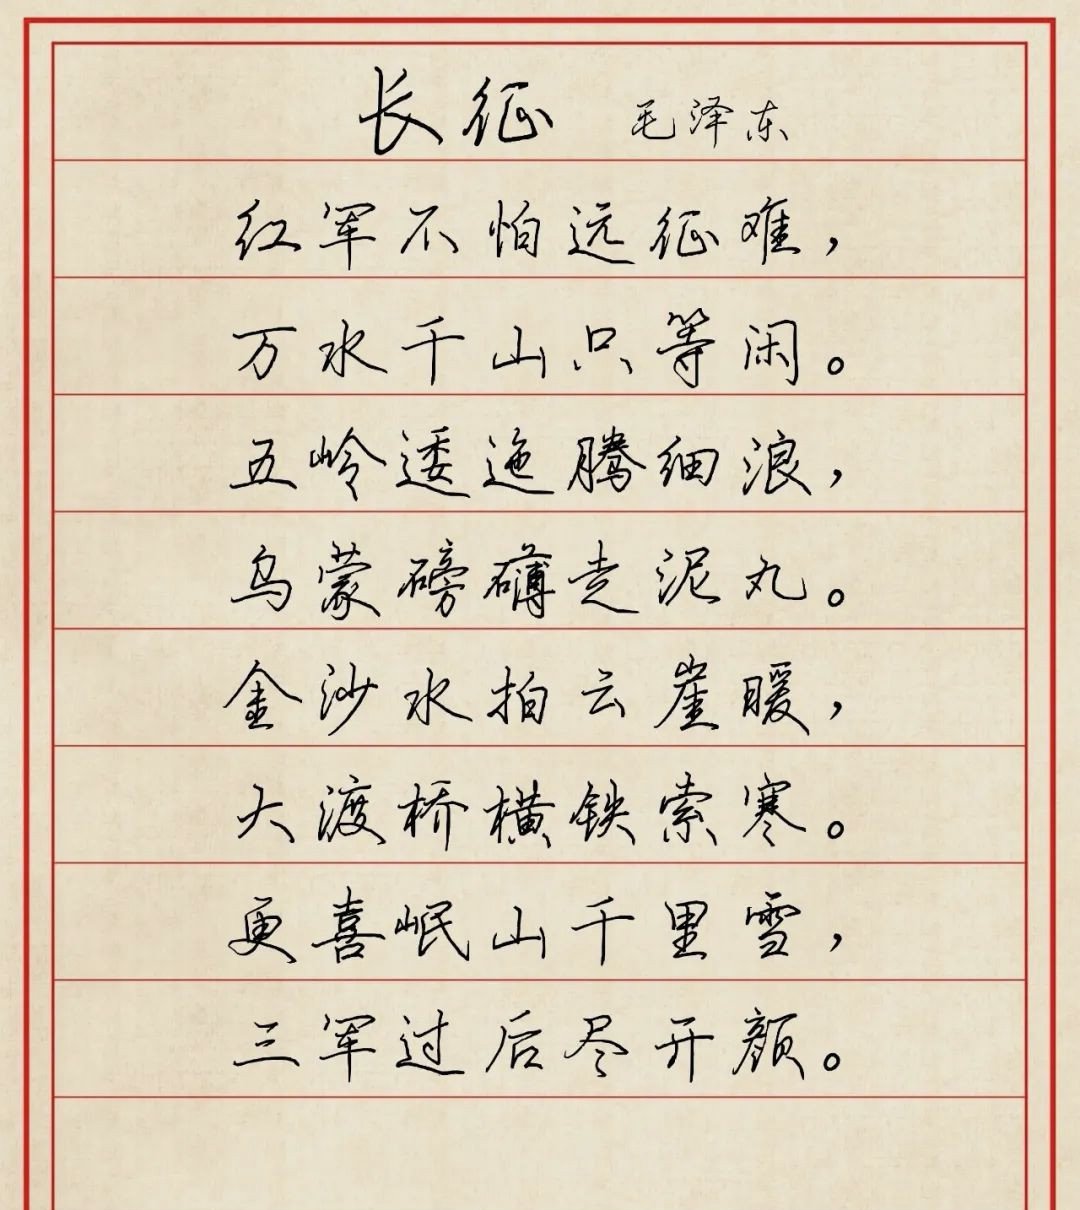 长征 毛泽东
红军不怕远征难，
万水千山只等闲。
五岭逶迤腾细浪，
乌蒙磅礴走泥丸。
金沙水拍云崖暖，
大渡桥横铁索寒。
更喜岷山千里雪，
三军过后尽开颜。